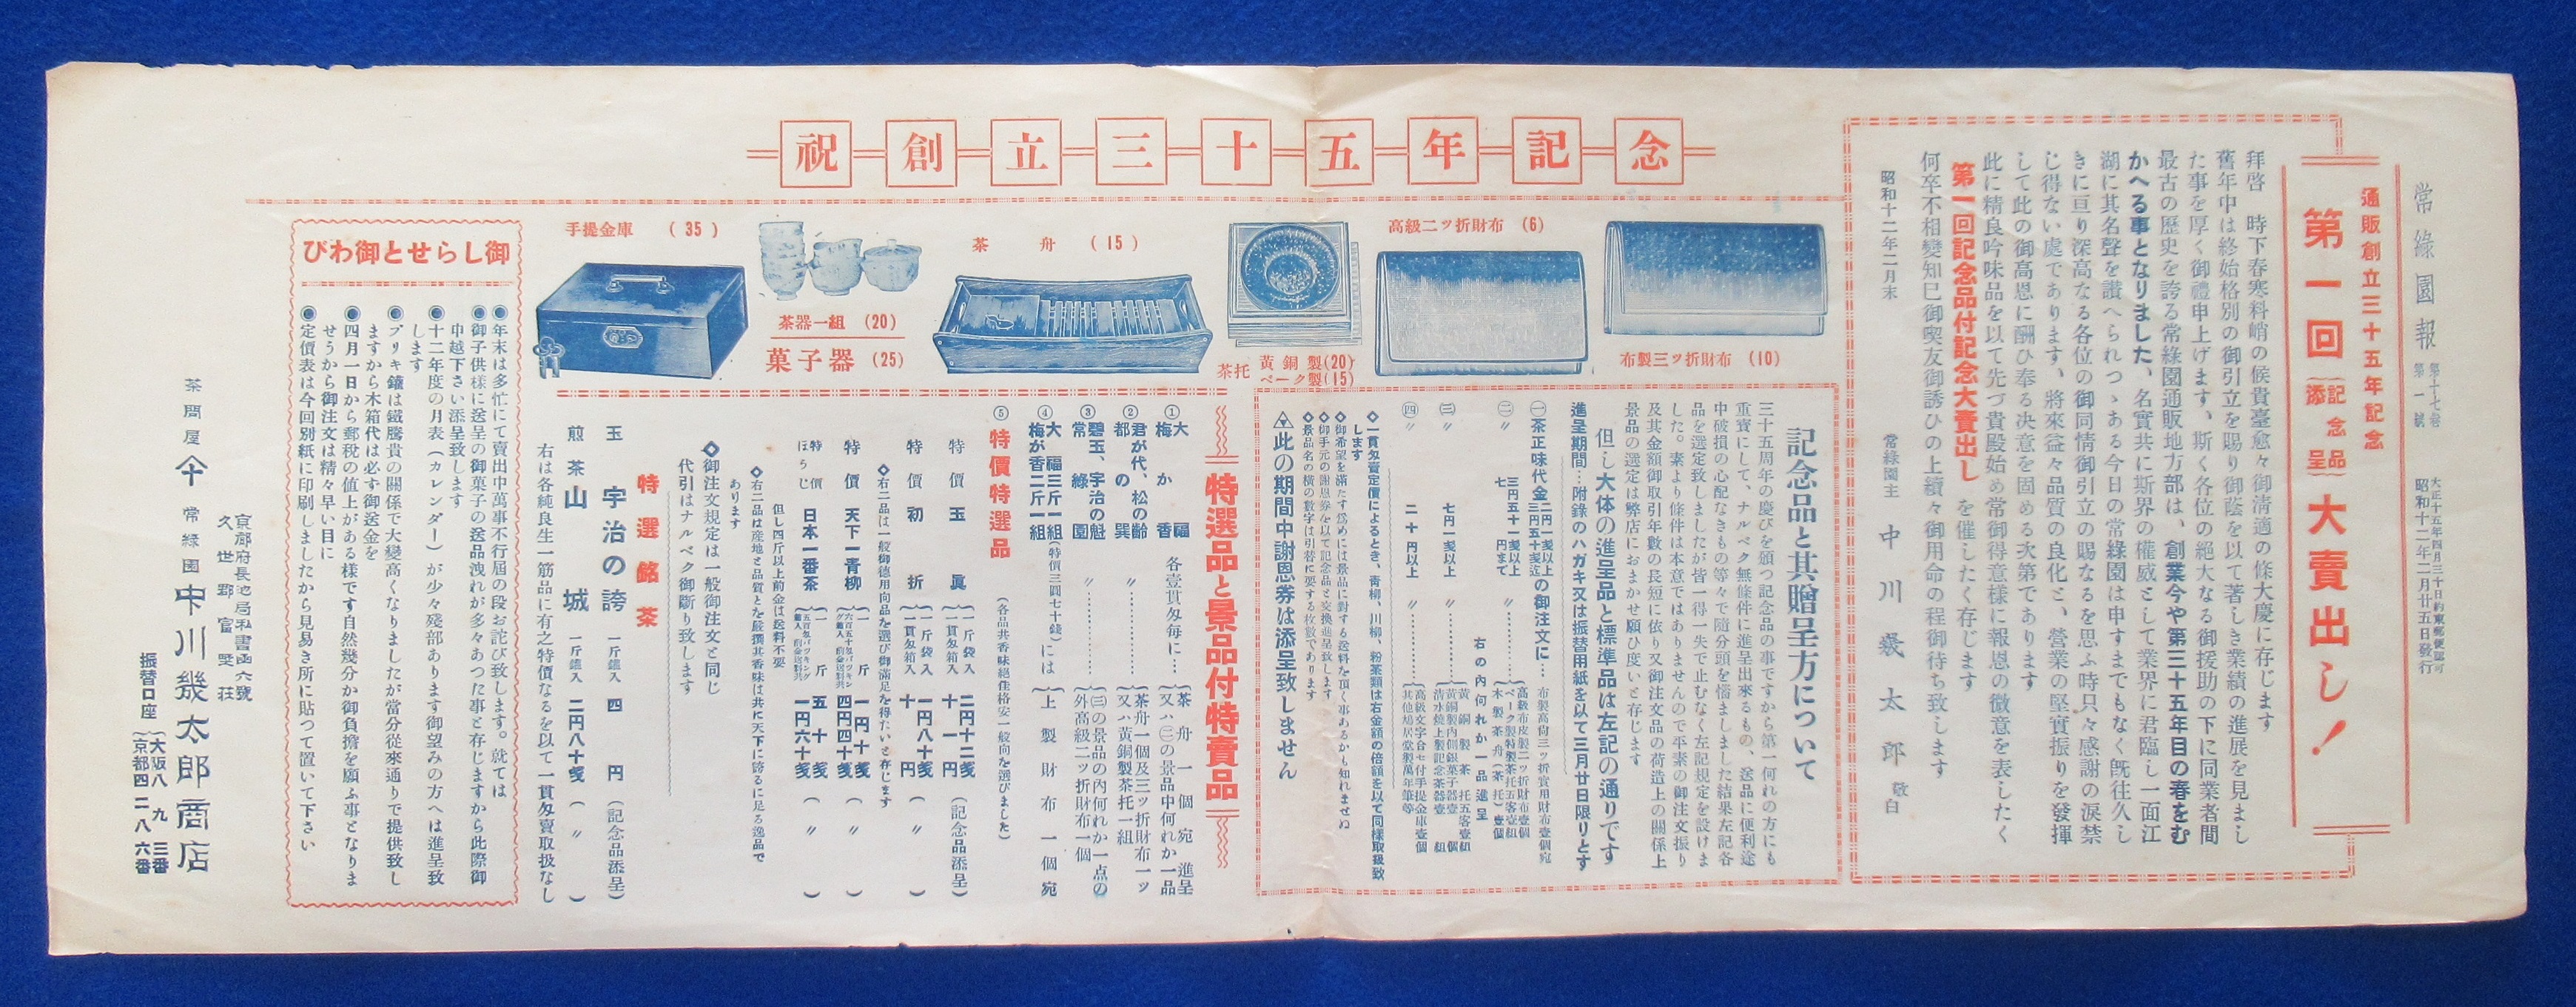 常綠園報
第十七卷
第一號
大正十五年四月三十日第三種郵便物認可
昭和十二年二月廿五日發行
通販創立三十五年記念
第一回(記念品添呈)大賣出し!
拜啓 時下春寒料峭の候貴臺愈々御淸適の條大慶に存じます
舊年中は終始格別の御引立を賜り御蔭を以て著しき業績の進展を見まし
た事を厚く御禮申上げます、斯く各位の絶大なる御援助の下に同業者間
最古の歷史を誇る常綠園通販地方部は、創業今や第三十五年目の春をむ
かへる事となりました、名實共に斯界の權威として業界に君臨し一面江
湖に其名聲を讃へられつゝある今日の常綠園は申すまでもなく旣往久し
きに亘り深高なる各位の御同情御引立の賜なるを思ふ時只々感謝の淚禁
じ得ない處であります、將來益々品質の良化と、營業の堅實振りを發揮
して此の御高恩に酬ひ奉る決意を固める次第であります
此に精良吟味品を以て先づ貴殿始め常御得意樣に報恩の徵意を表したく
第一回記念品付記念大賣出し を催したく存じます
何卒不相變知巳御喫友御誘ひの上續々御用命の程御待ち致します
昭和十二年二月末
常綠園主 中川幾太郎 敬白
祝創立三十五年記念
布製三ツ折財布 (10)
高級二ツ折財布 (6)
茶托 黃銅製(20)
ベーク製(15)
茶舟 (15)
茶器一組 (20)
菓子器 (25)
手提金庫 (35)
記念品と其贈呈方について
三十五周年の慶びを頒つ記念品の事ですから第一何れの方にも
重寳にして、ナルベク無條件に進呈出來るもの、送品に便利途
中破損の心配なきもの等々で隨分頭を惱ましました結果左記各
品を選定致しましたが皆一得一失で止むなく左記規定を設けま
した。素より條件は本意ではありませんので平素の御注文振り
及其金額御取引年數の長短に依り又御注文品の荷造上の關係上
景品の選定は弊店におまかせ願ひ度いと存じます
但し大体の進呈品と標準品は左記の通りです
進呈期間…附錄のハガキ又は振替用紙を以て三月廿日限りとす
㈠茶正味代金二円一錢以上三円五十錢迄の御注文に… 布製高尙三ツ折實用財布壹個宛
㈡〃 三円五十一錢以上七円まで 〃…… 高級布皮製二ツ折財布壹個
ベーク製特製茶托五客壹組
木製茶舟(茶托)壹個
右の內何れか一品進呈
㈢〃 七円一錢以上 〃…… 黃銅製茶托五客壹組
黃銅製內側銀菓子器壹個
淸水燒上製記念茶器壹組
㈣〃 二十円以上 〃…… 高級文字合セ付手提金庫壹個
其他鳩居堂製萬年筆等
◇一貫匁壹定價によるとき、靑柳、川柳、粉茶類は右金額の倍額を以て同樣取扱致
します
◇御希望を滿たす爲めには景品に對する送料を頂く事あるかも知れませぬ
◇御手元の謝恩券を以て記念品と交換進呈致します、
◇景品名の橫の數字は引替に要する枚數であります
此の期間中謝恩券は添呈致しません
特選品と景品付特賣品
①大福 梅か香 各壹貫匁每に… 茶舟一個宛進呈
又ハ㈢の景品中何れか一品
②君が代、松の齡 都の巽 〃…… 茶舟一個及三ツ折財布一ツ
又ハ黃銅製茶托一組
③碧玉、宇治の魁 常綠園 〃…… ㈢の景品の內何れか一点の
外高級二ッ折財布一個
④大福三斤一組 梅が香二斤一組(特價三圓七十錢)には 上製財布一個宛
⑤特價特選品 (各品共香味絕佳格安一般向を選びました)
特價 玉眞 一斤袋入 二円十二錢
一貫匁箱入 十一円 (記念品添呈)
特價 初折 一斤袋入 一円八十錢
一貫匁箱入 十円 (〃)
◇右二品は一般御德用向品を選び御滿足を得たいと存じます
特價 天下一靑柳 一斤 一円十錢
四円四十錢 (〃)
特價 ほうじ 日本一番茶 一斤 五十錢
一円六十錢 (〃)
但し四斤以上前金は送料不要
◇右二品は産地と品質とを嚴撰其香味は共に天下に誇るに足る逸品で
あります
◇御注文規定は一般御注文と同じ
代引はナルベク御斷り致します
特選銘茶
玉 宇治の誇 一斤鑵入 四円 (記念品添呈)
煎茶 山城 一斤鑵入 二円八十錢 (〃)
右は各純良生一筋品に有之特價なるを以て一貫匁賣取扱なし
御しらせと御わび
◉年末は多忙にて賣出中萬事不行屆の段お詫び致します。就ては
◉御子供樣に送呈の御菓子の送品洩れが多々あつた事と存じますから此際御
中越下さい添呈致します
◉十二年度の月表(カレンダー)が少々殘部あります御望みの方へは進呈致
します
◉ブリキ鑵は鐵騰貴の關係で大變高くなりましたが當分從來通りで提供致し
ますから木箱代は必ず御送金を
◉四月一日から郵稅の値上がある樣です自然幾分か御負擔を願ふ事となりま
せうから御注文は精々早い目に
◉定價表は今回別紙に印刷しましたから見易き所に貼つて置いて下さい
京都府長池局私書函六號
久世郡富野荘
茶問屋 常綠園 中川幾太郎商店
振替口座 大阪八九三番
京都四二八六番